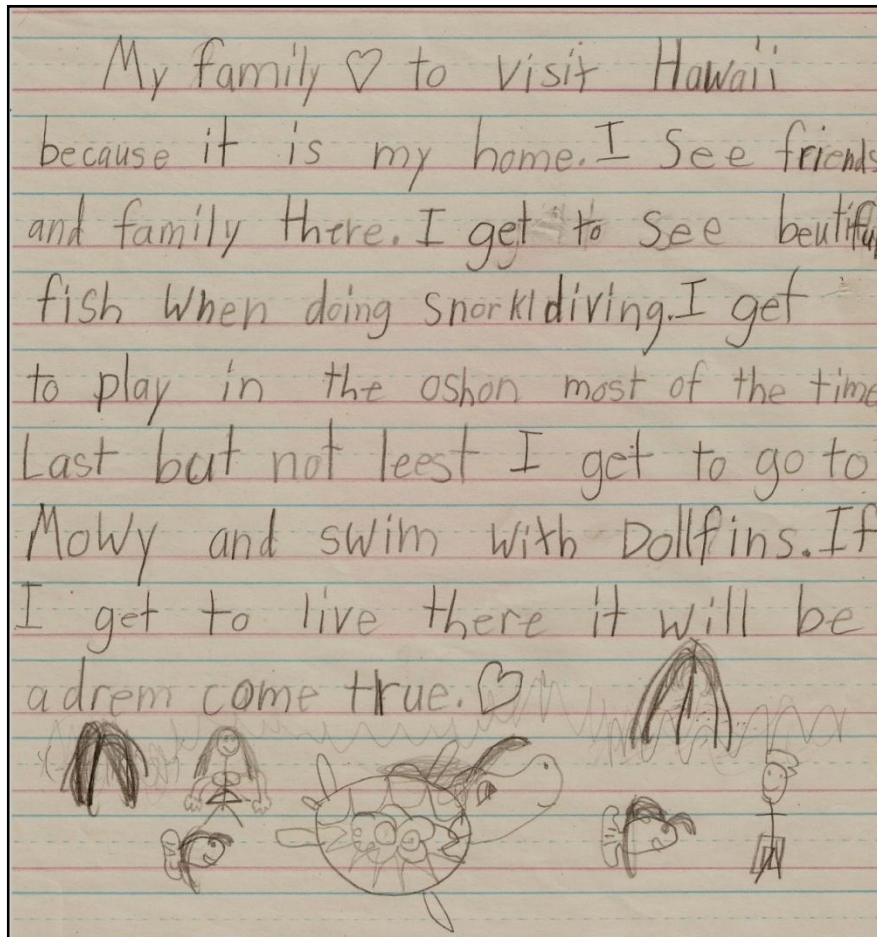 My family ♡ to visit Hawaii
because it is my home. I see friends
and family there. I get to see beutiful
fish when doing snorkldiving. I get
to play in the oshon most of the time
Last but not leest I get to go to
Mowy and swim with Dollfins. If
I get to live there it will be
a drem come true. ♡